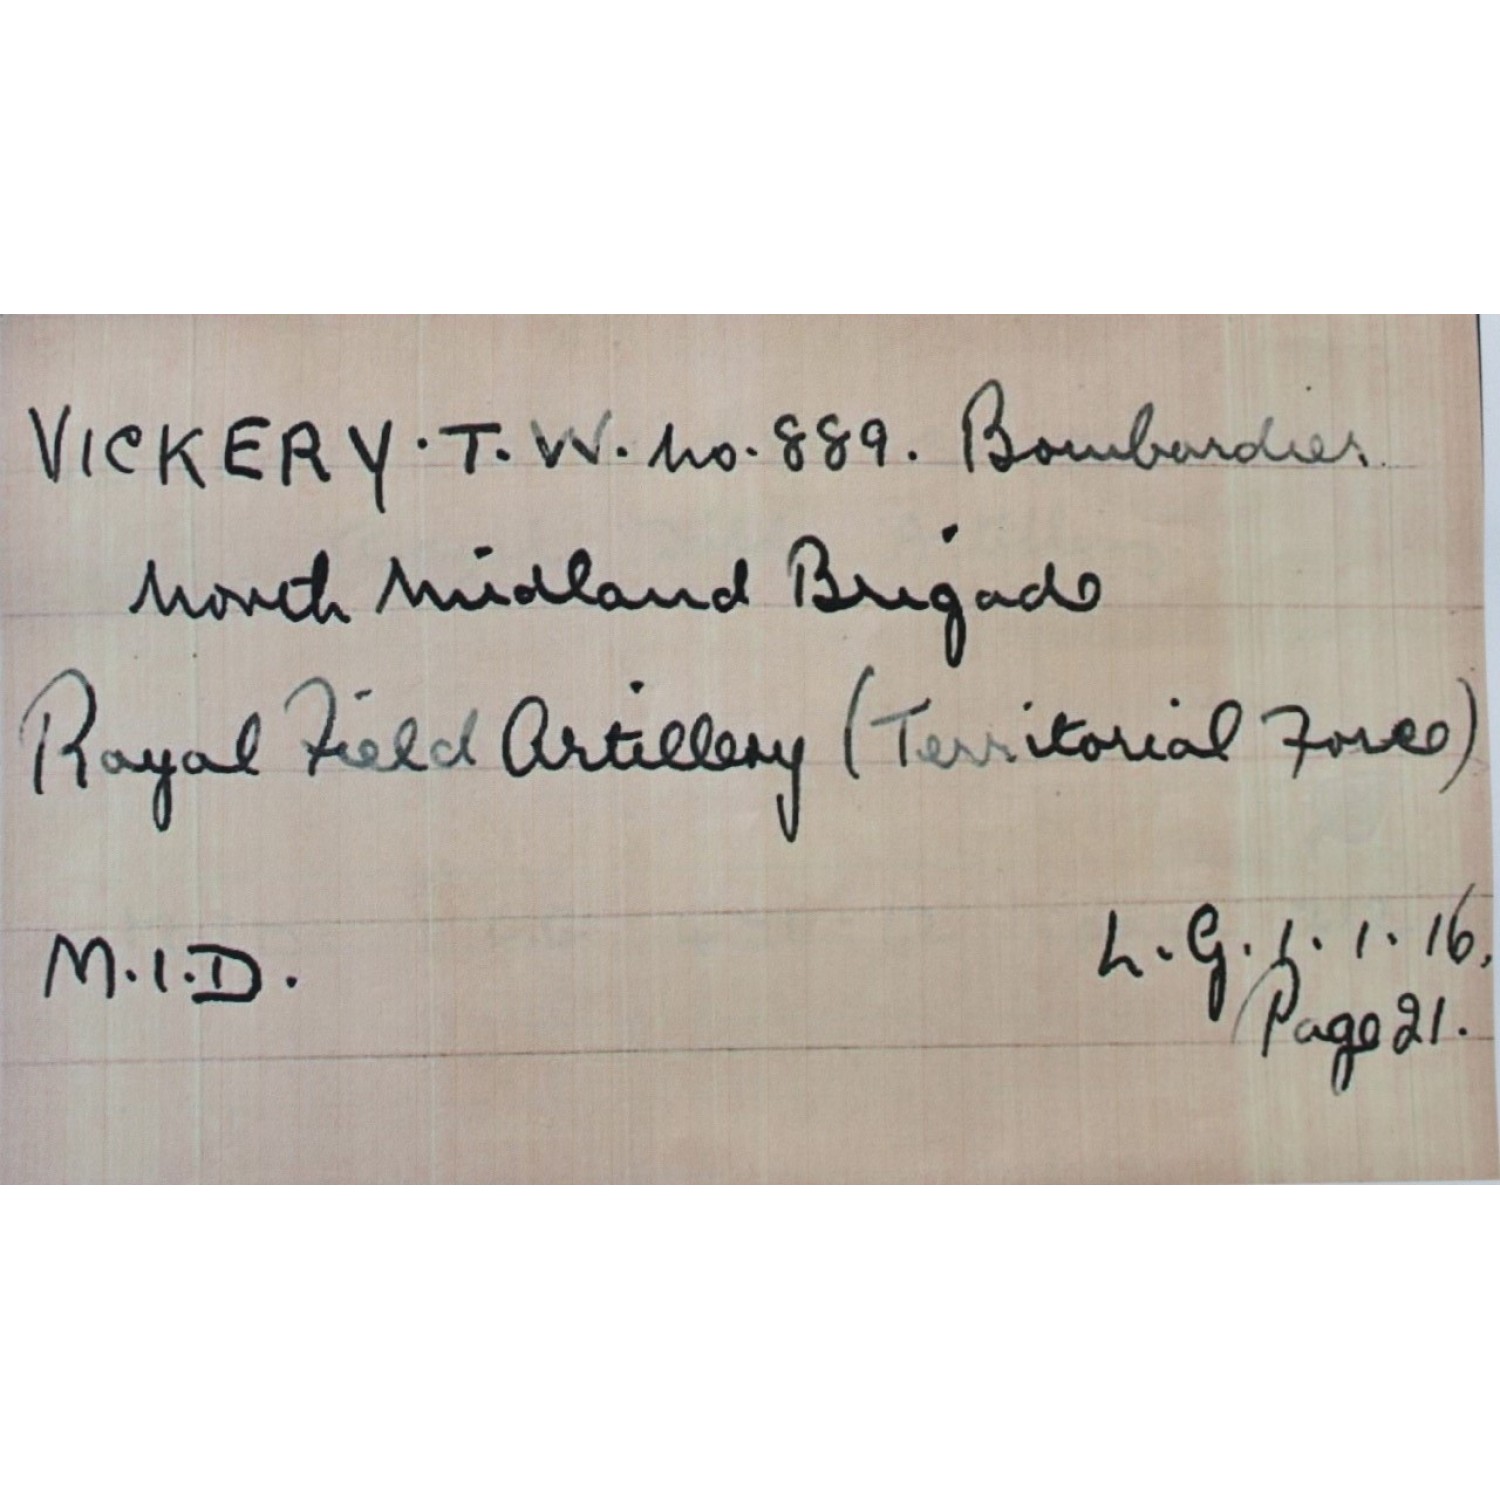 VICKERY. T. W. No. 889. Bombardier.
North Midland Brigade
Royal Field Artillery (Territorial Force)
M.I.D.
L.G. 1.1.16,
Page 21.